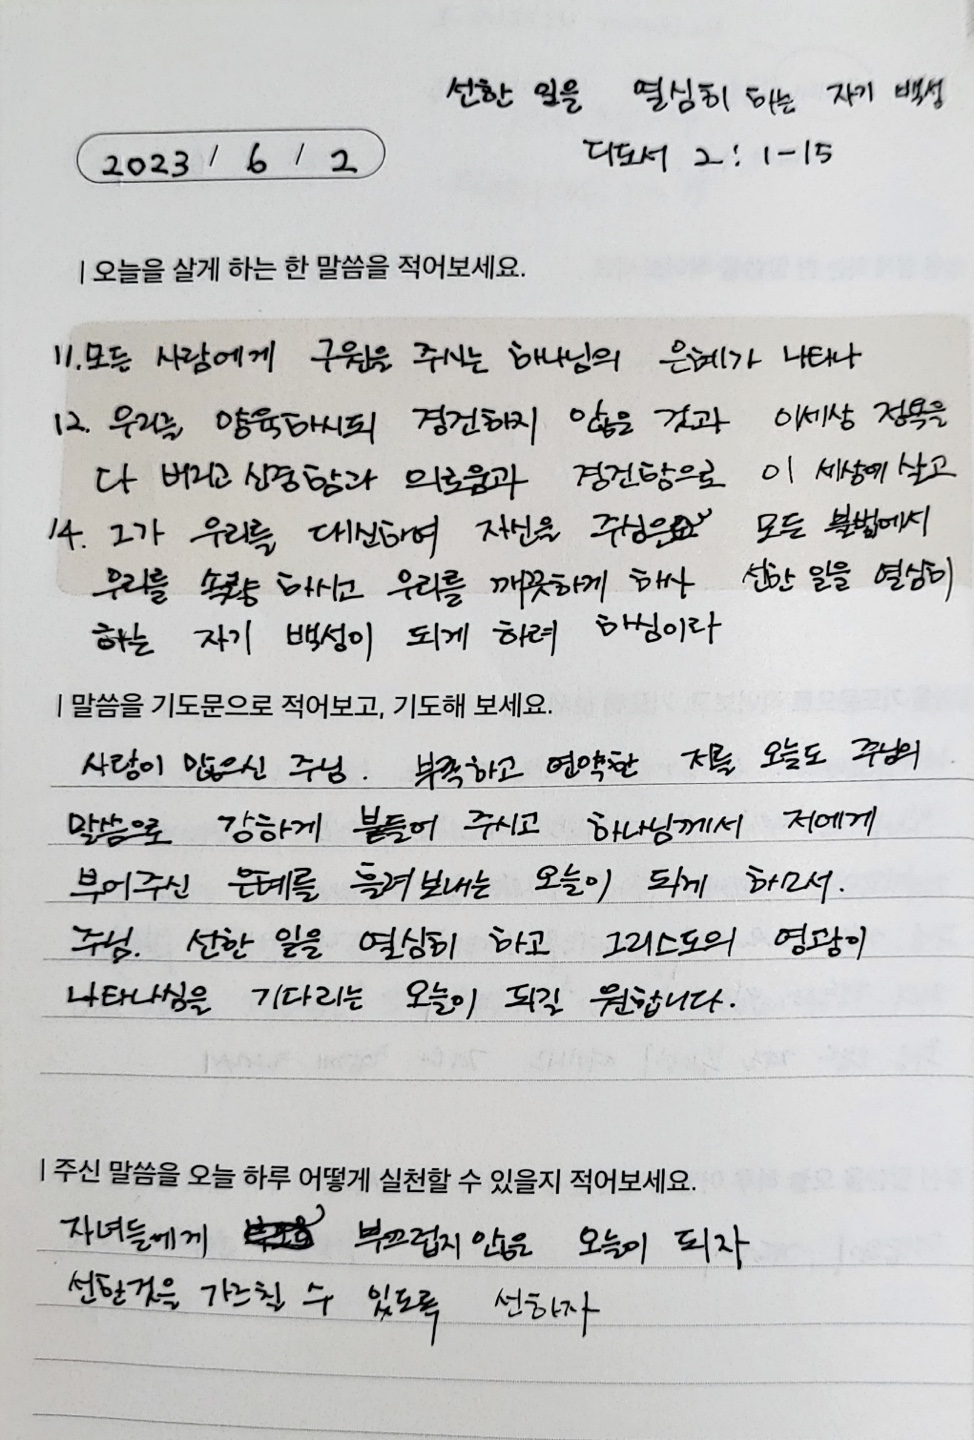 선한 일을 열심히 하는 자기 백성
디도서 2:1-15
2023 / 6 / 2
| 오늘을 살게 하는 한 말씀을 적어보세요.
11.모든 사람에게 구원을 주시는 하나님의 은혜가 나타나
12. 우리를 양육하시되 경건하지 않은 것과 이세상 정욕을
다 버리고 신중함과 의로움과 경건함으로 이 세상에 살고
14. 그가 우리를 대신하여 자신을 주심은 모든 불법에서
우리를 속량 하시고 우리를 깨끗하게 하사 선한 일을 열심히
하는 자기 백성이 되게 하려 하심이라
| 말씀을 기도문으로 적어보고, 기도해 보세요.
사랑이 많으신 주님. 부족하고 연약한 저를 오늘도 주님의
말씀으로 강하게 붙들어 주시고 하나님께서 저에게
부어주신 은혜를 흘려보내는 오늘이 되게 하소서.
주님. 선한 일을 열심히 하고 그리스도의 영광이
나타나심을 기다리는 오늘이 되길 원합니다.
| 주신 말씀을 오늘 하루 어떻게 실천할 수 있을지 적어보세요.
자녀들에게 부끄럽지 않은 오늘이 되자
선한것을 가르칠 수 있도록 선하자